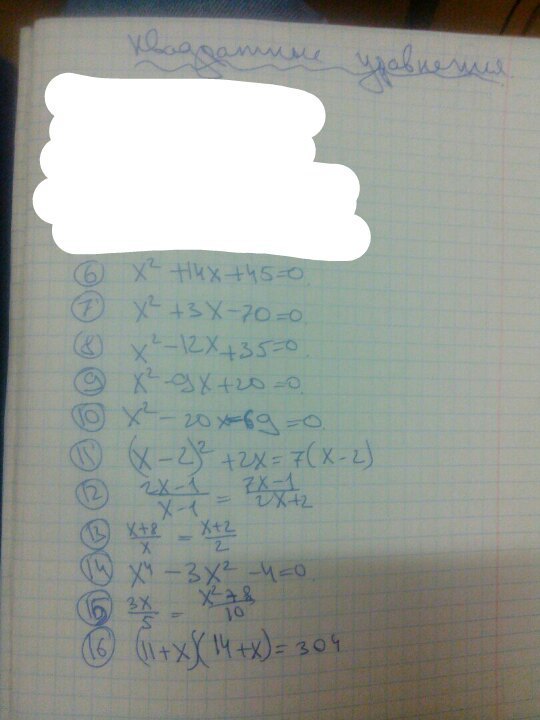 Квадратные уравнения
6 x² +14x+45=0.
7 x² +3x-70=0.
8 x²-12x+35=0.
9 x²-9x+20=0.
10 x²-20x-69=0.
11 (x-2)² +2x=7(x-2)
12 2x-1/x-1 = 7x-1/2x+2
13 x+8/x = x+2/2
14 x⁴-3x²-4=0.
15 3x/5 = x²+8/10
16 (11+x)(14+x)=304